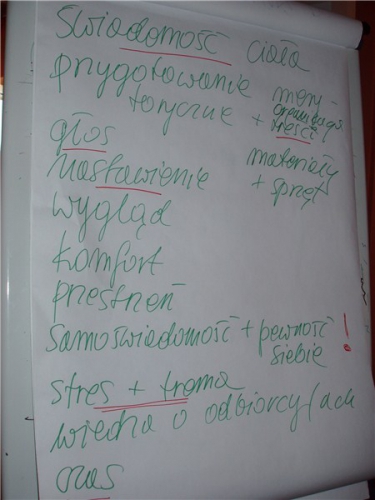 świadomość ciała
przygotowanie mery-
toryczne + organizacja
treści
głos
nastawienie materiały
+ sprzęt
wygląd
komfort
przestrzeń
samoświadomość + pewność !
siebie
stres + trema
wiedza o odbiorcy/ach
czas